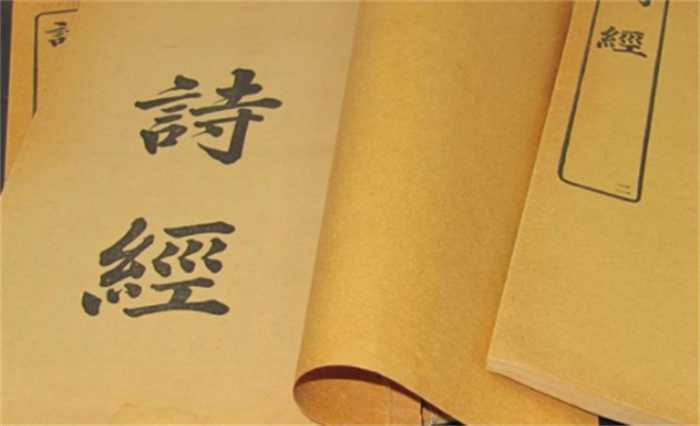 詩經
經
二